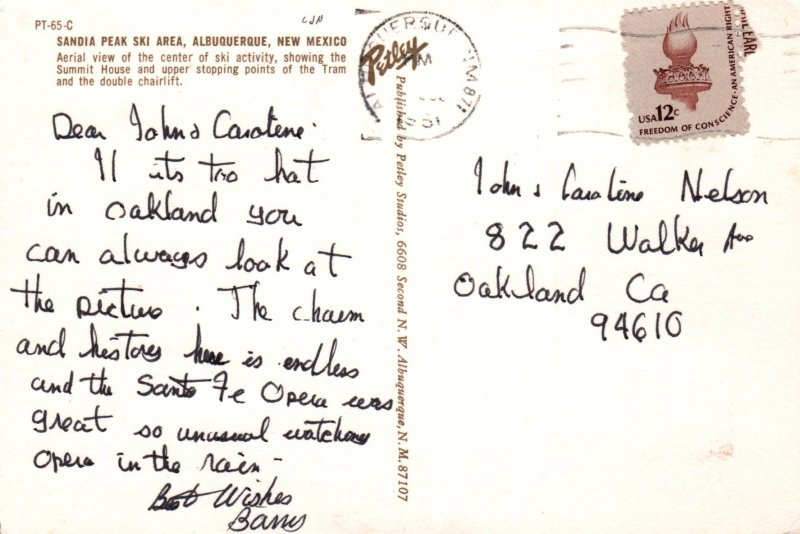 PT-65-C
SANDIA PEAK SKI AREA, ALBUQUERQUE, NEW MEXICO
Aerial view of the center of ski activity, showing the
Summit House and upper stopping points of the Tram
and the double chairlift.
Dear John & Carolene.
If its too hot
in Oakland you
can always look at
the picture. The charm
and history here is endless
and the Santa Fe Opera was
great so unusual watching
Opera in the rain -
Best Wishes
Barry
Petley
Published by Petley Studios, 6608 Second N.W. Albuquerque, N.M. 87107
USA 12c
FREEDOM OF CONSCIENCE-AN AMERICAN RIGHT
John & Caroline Nelson
822 Walker Ave
Oakland Ca
94610